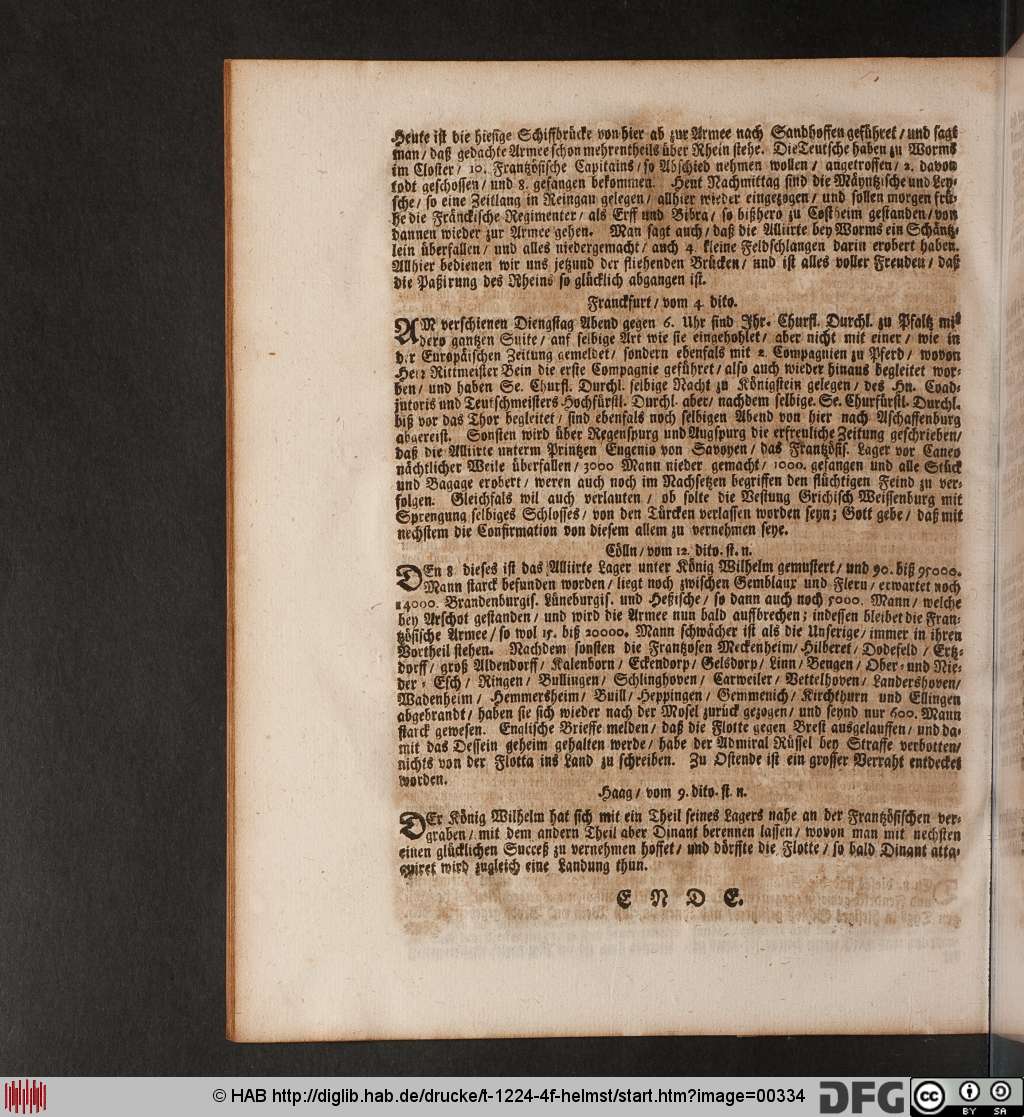 Heute ist die hiesige Schiffbrücke von hier ab zur Armee nach Sandhoffen geführet / und sagt
man / daß gedachte Armee schon mehrentheils über Rhein stehe. Die Teutsche haben zu Worms
im Closter / 10. Frantzösische Capitains / so Abschied nehmen wollen / angetroffen / 2. davon
todt geschossen / und 8. gefangen bekommen. Heut Nachmittag sind die Mäyntzische und Ley-
sche / so eine Zeitlang in Reingau gelegen / allhier wieder eingezogen / und sollen morgen frü-
he die Fränckische Regimenter / als Erff und Bibra / so bißhero zu Costheim gestanden / von
dannen wieder zur Armee gehen. Man sagt auch / daß die Alliirte bey Worms ein Schäntz-
lein überfallen / und alles niedergemacht / auch 4. kleine Feldschlangen darin erobert haben.
Allhier bedienen wir uns jetzund der fliehenden Brücken / und ist alles voller Freuden / daß
die Paßirung des Rheins so glücklich abgangen ist.
Franckfurt / vom 4. dito.
AM verschienen Diengstag Abend gegen 6. Uhr sind Ihr. Churfl. Durchl. zu Pfaltz mit
dero gantzen Suite / auf selbige Art wie sie eingehohlet / aber nicht mit einer / wie in
der Europäischen Zeitung gemeldet / sondern ebenfals mit 2. Compagnien zu Pferd / wovon
Herr Rittmeister Bein die erste Compagnie geführet / also auch wieder hinaus begleitet wor-
den / und haben Se. Churfl. Durchl. selbige Nacht zu Königstein gelegen / des Hn. Coad-
jutoris und Teutschmeisters Hochfürstl. Durchl. aber / nachdem selbige. Se. Churfürstl. Durchl.
biß vor das Thor begleitet / sind ebenfals noch selbigen Abend von hier nach Aschaffenburg
abgereist. Sonsten wird über Regenspurg und Augspurg die erfreuliche Zeitung geschrieben /
daß die Alliirte unterm Printzen Eugenio von Savoyen / das Frantzösis. Lager vor Caneo
nächtlicher Weile überfallen / 3000 Mann nieder gemacht / 1000. gefangen und alle Stück
und Bagage erobert / weren auch noch im Nachsetzen begriffen den flüchtigen Feind zu ver-
folgen. Gleichfals wil auch verlauten / ob solte die Vestung Grichisch Weissenburg mit
Sprengung selbiges Schlosses / von den Türcken verlassen worden seyn; Gott gebe / daß mit
nechstem die Confirmation von diesem allem zu vernehmen seye.
Cölln / vom 12. dito. st. n.
DEn 8. dieses ist das Alliirte Lager unter König Wilhelm gemustert / und 90. biß 95000.
Mann starck befunden worden / liegt noch zwischen Gemblaux und Fleru / erwartet noch
14000. Brandenburgis. Lüneburgis. und Heßische / so dann auch noch 5000. Mann / welche
bey Arschot gestanden / und wird die Armee nun bald auffbrechen; indessen bleibet die Fran-
tzösische Armee / so wol 15. biß 20000. Mann schwächer ist als die Unserige / immer in ihren
Vortheil stehen. Nachdem sonsten die Frantzosen Meckenheim / Hilberet / Dodefeld / Ertz-
dorff / groß Aldendorff / Kalenborn / Eckendorp / Gelsdorp / Linn / Bengen / Ober- und Nie-
der- Esch / Ringen / Bullingen / Schlinghoven / Carweiler / Vettelhoven / Landershoven /
Wadenheim / Hemmersheim / Buill / Heppingen / Gemmenich / Kirchthurn und Ellingen
abgebrandt / haben sie sich wieder nach der Mosel zurück gezogen / und seynd nur 600. Mann
starck gewesen. Englische Brieffe melden / daß die Flotte gegen Brest ausgelauffen / und da-
mit das Dessein geheim gehalten werde / habe der Admiral Rüssel bey Straffe verbotten /
nichts von der Flotta ins Land zu schreiben. Zu Ostende ist ein grosser Verraht entdecket
worden.
Haag / vom 9. dito. st. n.
DEr König Wilhelm hat sich mit ein Theil seines Lagers nahe an der Frantzösischen ver-
graben / mit dem andern Theil aber Dinant berennen lassen / wovon man mit nechsten
einen glücklichen Succeß zu vernehmen hoffet / und dörffte die Flotte / so bald Dinant atta-
quiret wird zugleich eine Landung thun.
E N D E.
© HAB http://diglib.hab.de/drucke/t-1224-4f-helmst/start.htm?image=00334
DFG
cc
BY SA